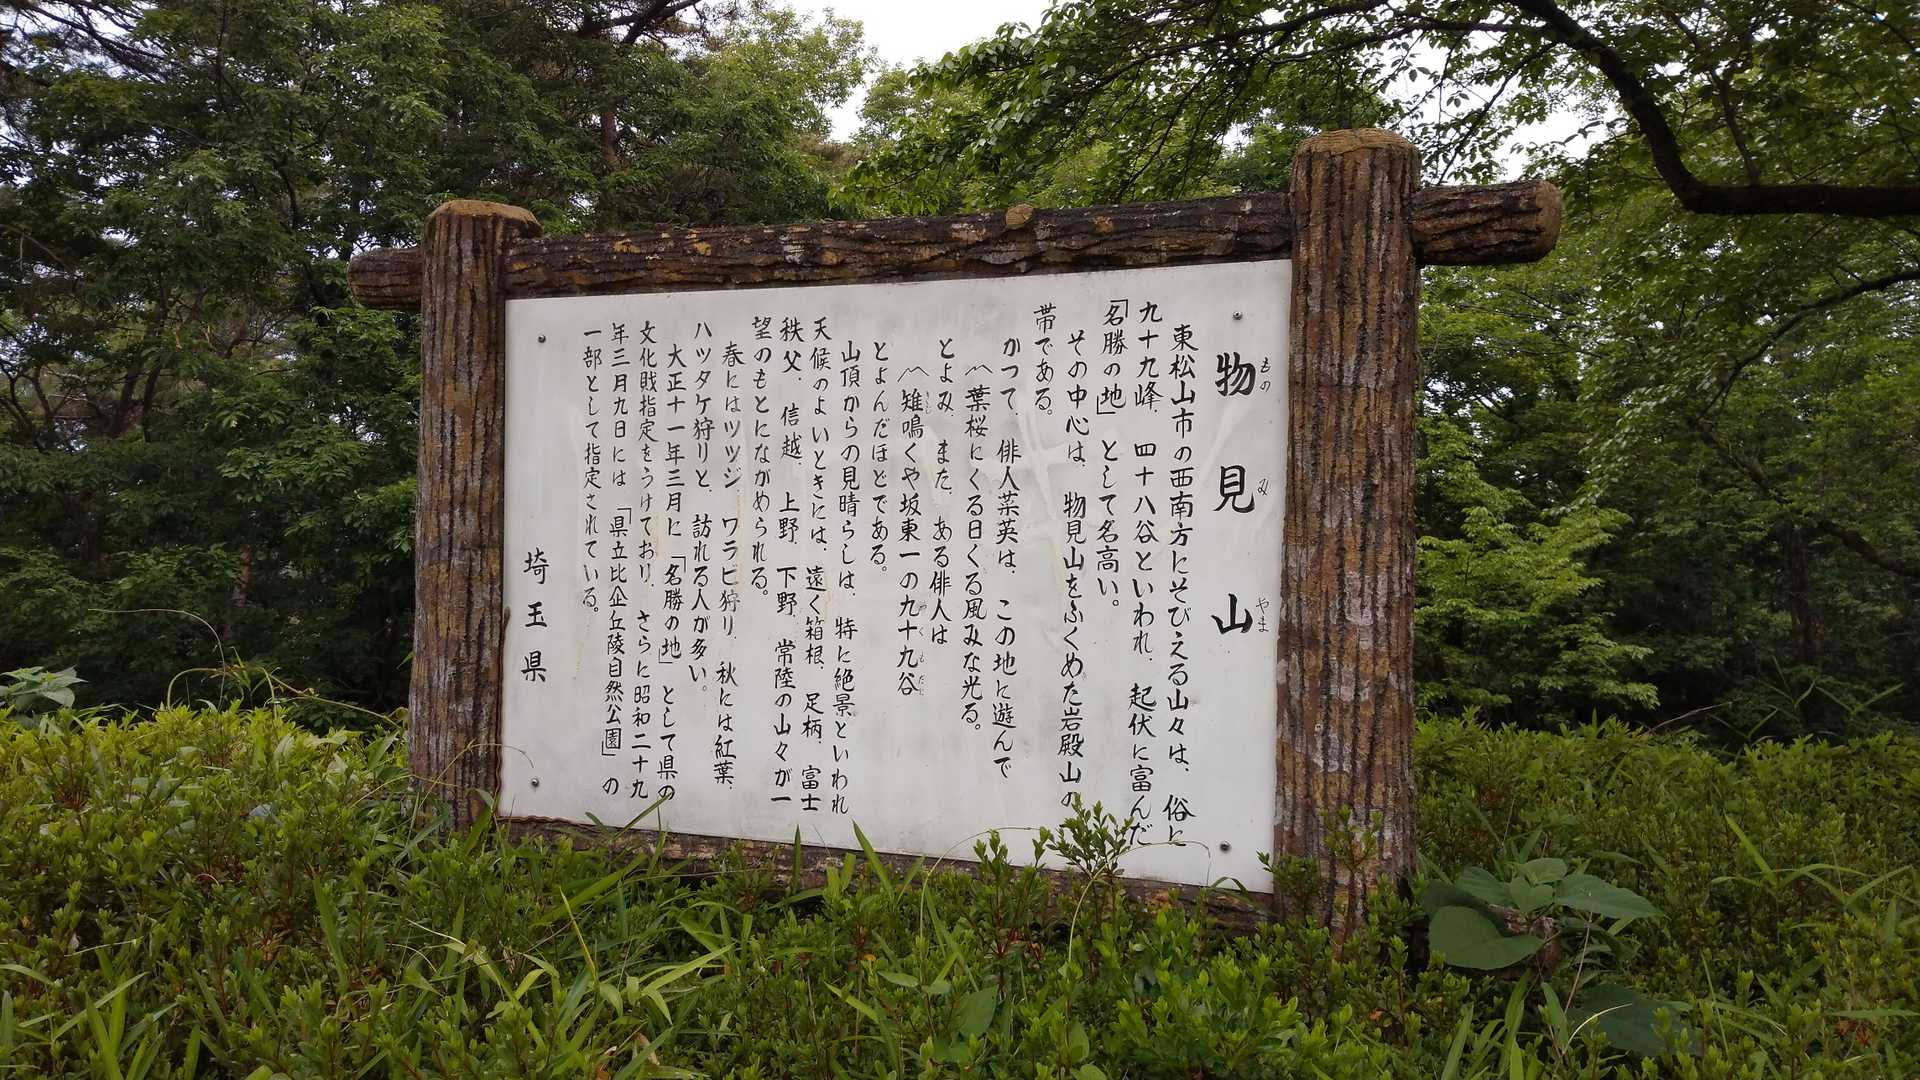 物見山
ものみやま
東松山市の西南方にそびえる山々は、俗に
九十九峰、四十八谷といわれ、起伏に富んだ
「名勝の地」として名高い。
その中心は、物見山をふくめた岩殿山の
帯である。
かつて、俳人菜英は、この地に遊んで
〽葉桜にくる日くる風みな光る。
とよみ、また、ある俳人は
〽雉鳴くや坂東一の九十九谷
きじ つくもだに
とよんだほどである。
山頂からの見晴らしは、特に絶景といわれ
天候のよいときには、遠く箱根、足柄、富士
秩父、信越、上野、下野、常陸の山々が一
望のもとにながめられる。
春にはツツジ ワラビ狩り、秋には紅葉、
ハツタケ狩りと、訪れる人が多い。
大正十一年三月に「名勝の地」として県の
文化財指定をうけており、さらに昭和二十九
年三月九日には「県立比企丘陵自然公園」の
一部として指定されている。
埼玉県